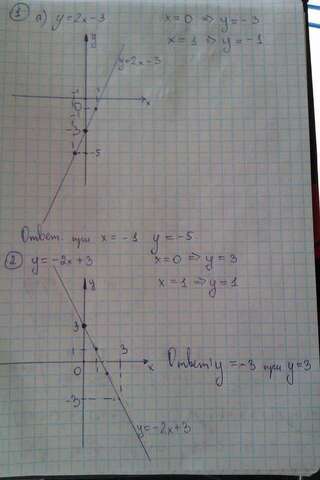 ① a) y=2x-3 x=0 => y=-3
x=1 => y=-1
y
y=2x-3
-1 1
0 x
-3
-5
Ответ: при x=-1 y=-5
② y=-2x+3 x=0 => y=3
x=1 => y=1
y
3
1 3
0 x
Ответ: y=-3 при y=3
-3
y=-2x+3